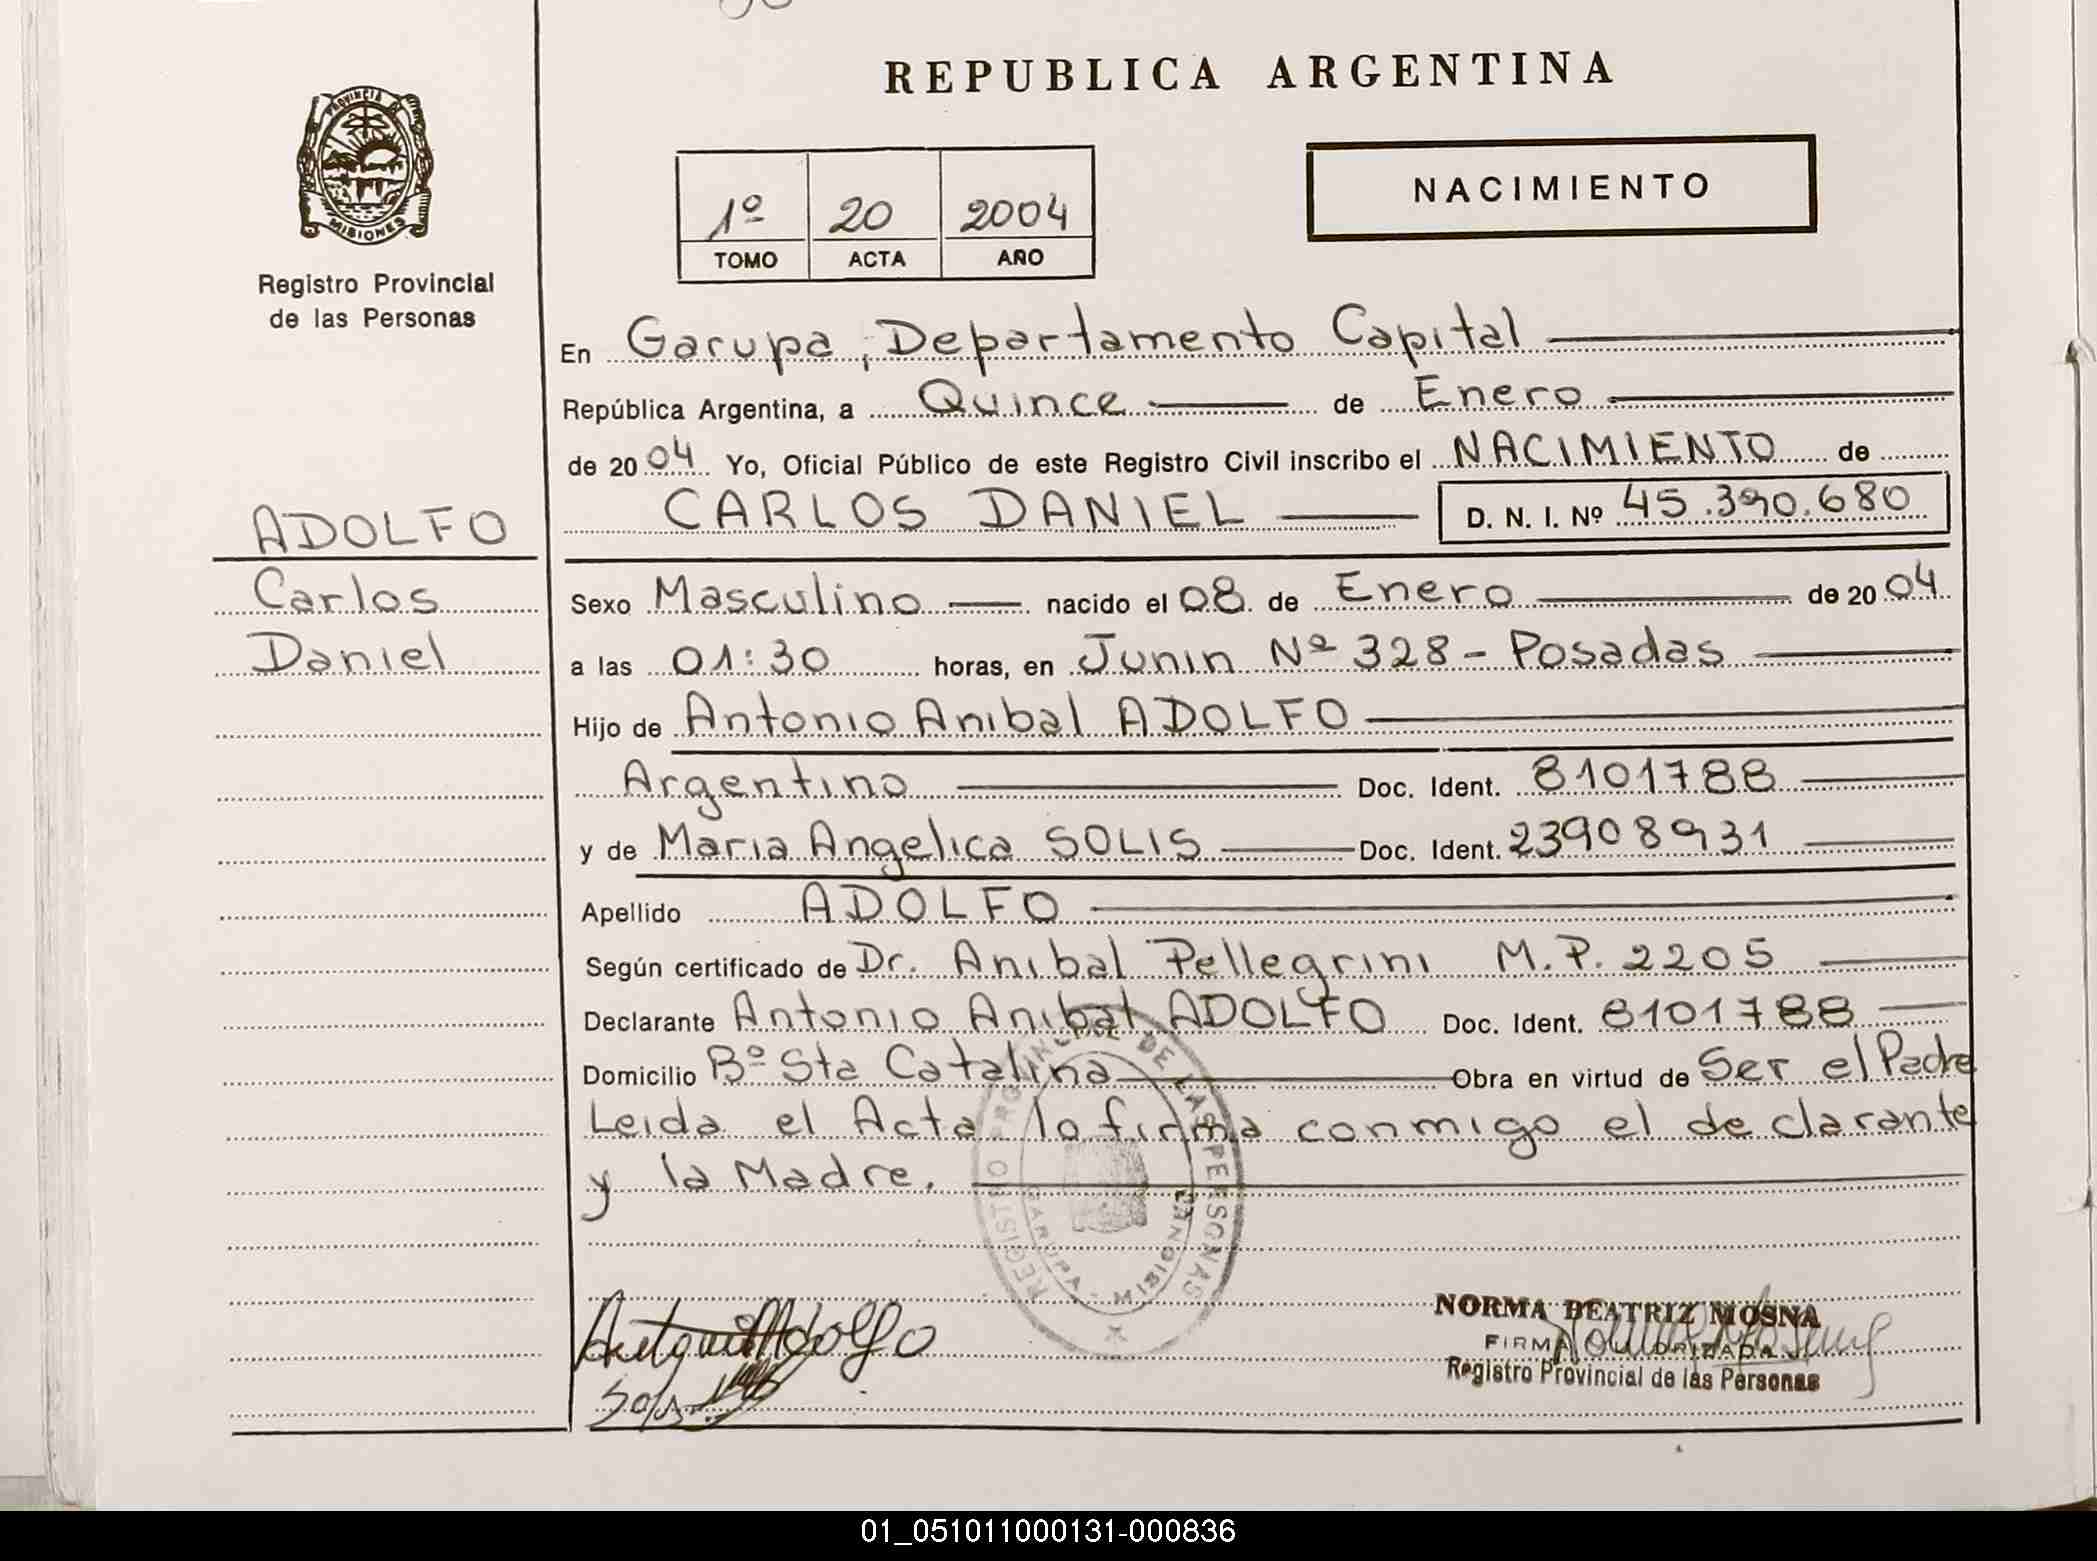 REPUBLICA ARGENTINA
PROVINCIA DE
MISIONES
Registro Provincial
de las Personas
1º 20 2004
TOMO ACTA AÑO
NACIMIENTO
En Garupa, Departamento Capital
República Argentina, a Quince de Enero
de 2004 Yo, Oficial Público de este Registro Civil inscribo el NACIMIENTO de
CARLOS DANIEL D. N. I. Nº 45.390.680
ADOLFO
Carlos
Daniel
Sexo Masculino nacido el 08 de Enero de 2004
a las 01:30 horas, en Junin Nº 328 - Posadas
Hijo de Antonio Anibal ADOLFO
Argentino Doc. Ident. 8101788
y de Maria Angelica SOLIS Doc. Ident. 23908931
Apellido ADOLFO
Según certificado de Dr. Anibal Pellegrini M.P. 2205
Declarante Antonio Anibal ADOLFO Doc. Ident. 8101788
Domicilio Bº Sta Catalina Obra en virtud de Ser el Padre
Leida el Acta la firma conmigo el declarante
y la Madre.
REGISTRO PROVINCIAL DE LAS PERSONAS
GARUPA - MISIONES
Adolfo
Solis
NORMA BEATRIZ MOSNA
FIRMA AUTORIZADA
Registro Provincial de las Personas
01_051011000131-000836